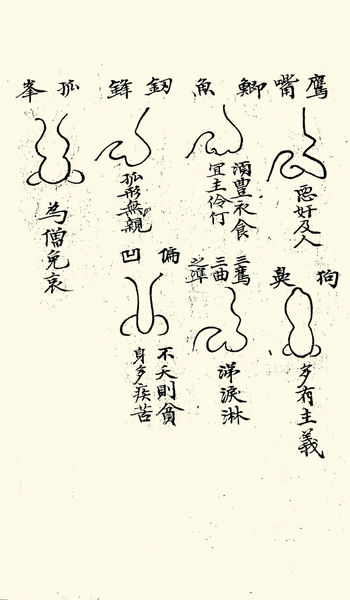 鷹嘴
恶奸及人
狗鼻
多有主義
鯽魚
豊衣食
冝主伶仃
三
三曲
之準
涕淚淋
釰鋒
孤形無親
偏凹
不夭則貧
身多疾苦
孤峯
為僧免哀